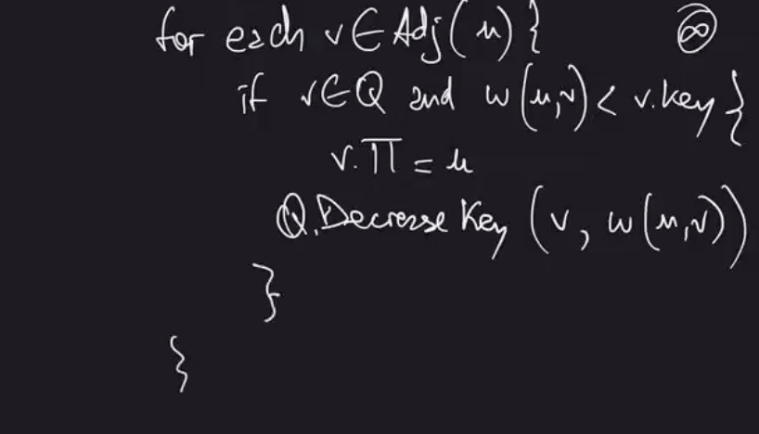 for each v∈Adj(u){ ∞
if v∈Q and w(u,v) < v.key}
v.π = u
Q.Decrease Key (v, w(u,v))
}
}